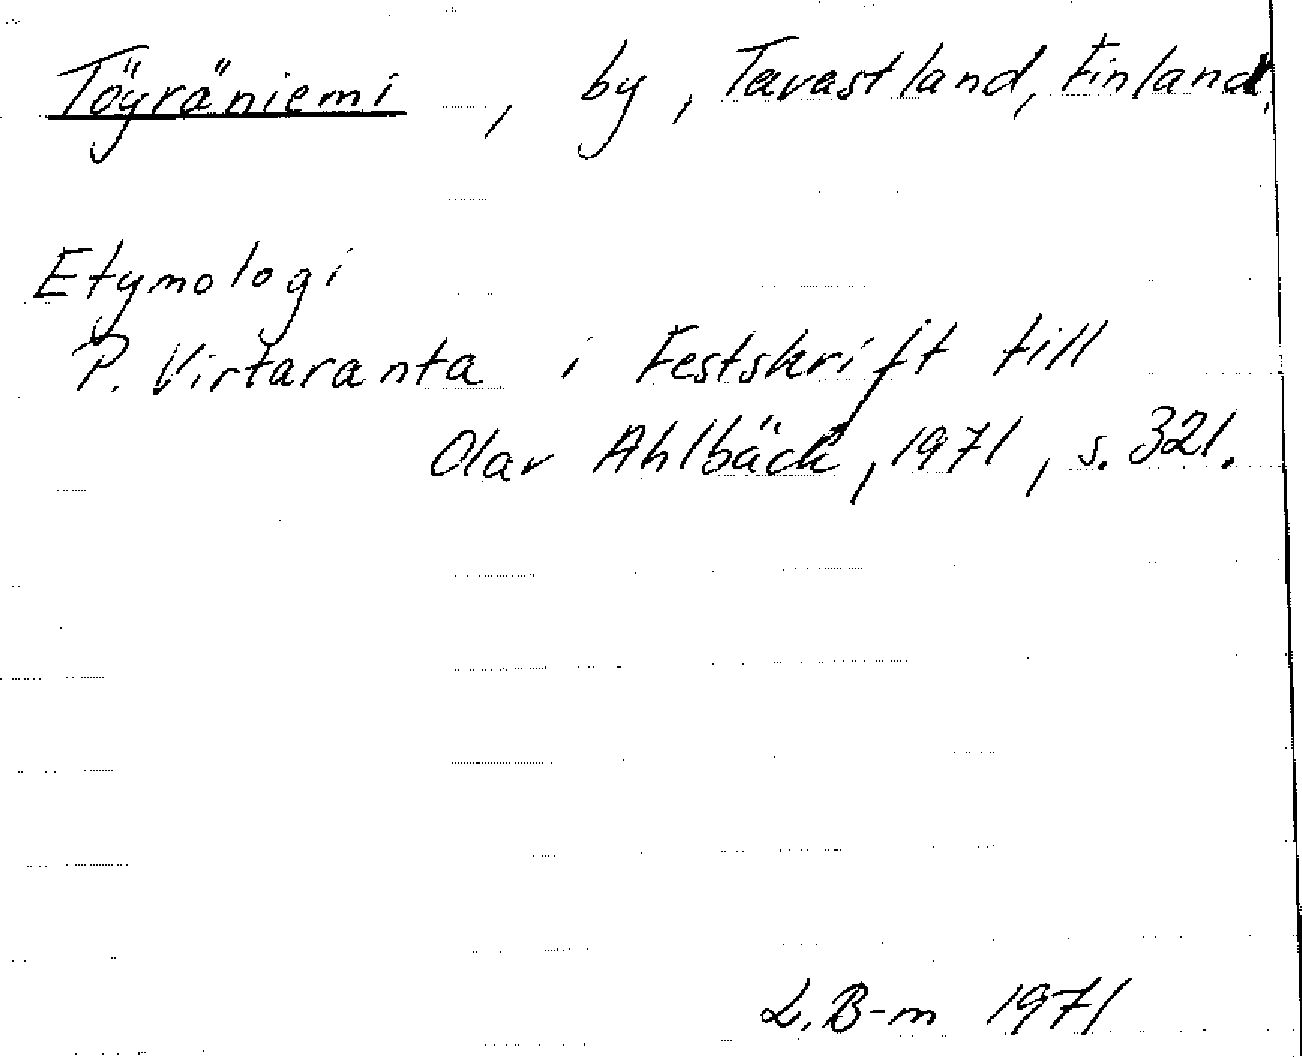 Töyräniemi, by, Tavastland, Finland.
Etymologi
P. Virtaranta i Festskrift till
Olav Ahlbäck, 1971, s. 321.
L. B-m 1971